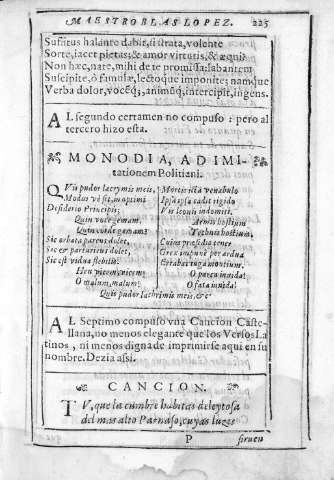 MAESTRO BLAS LOPEZ. 225
Suffitus halante dabit, si strata, volente
Sorte, iacet pietas; & amor virtutis, & æqui?
Non hæc, nate, mihi de te promissa: labantem
Suscipite, ô famulæ, lectoque imponite; namque
Verba dolor, vocēq;, animūq, intercipit, ingens.
AL segundo certamen no compuso: pero al
tercero hizo esta.
MONODIA, AD IMI-
tationem Politiani.
QVis pudor lacrymis meis,
Modus vè sit, in optimi
Desiderio Principis;
Quin voce gemam,
Quin corde gemam?
Sic orbata parens dolet,
Sic
Sic est vidua flebilis.
Heu vicem, vicem;
O malum, malum;
Mortis icta venabulo
Ipsa ipsa cadit rigido
Vis leonis indomiti.
Armis hostium
Technis hostium.
Cuius præsidio tener
Grex impunè per ardua
Errabat iuga montium.
O parca inuida!
O fata inuida!
Quis pudor lachrimis meis, &c
AL Septimo compuso vna Cancion Caste-
llana, no menos elegante que los Versos La
tinos, ni menos digna de imprimirse aqui en su
nombre. Dezia assi.
CANCION.
TV, que la cumbre habitas deleytosa
del mas alto Parnaso, cuyas luzes
P